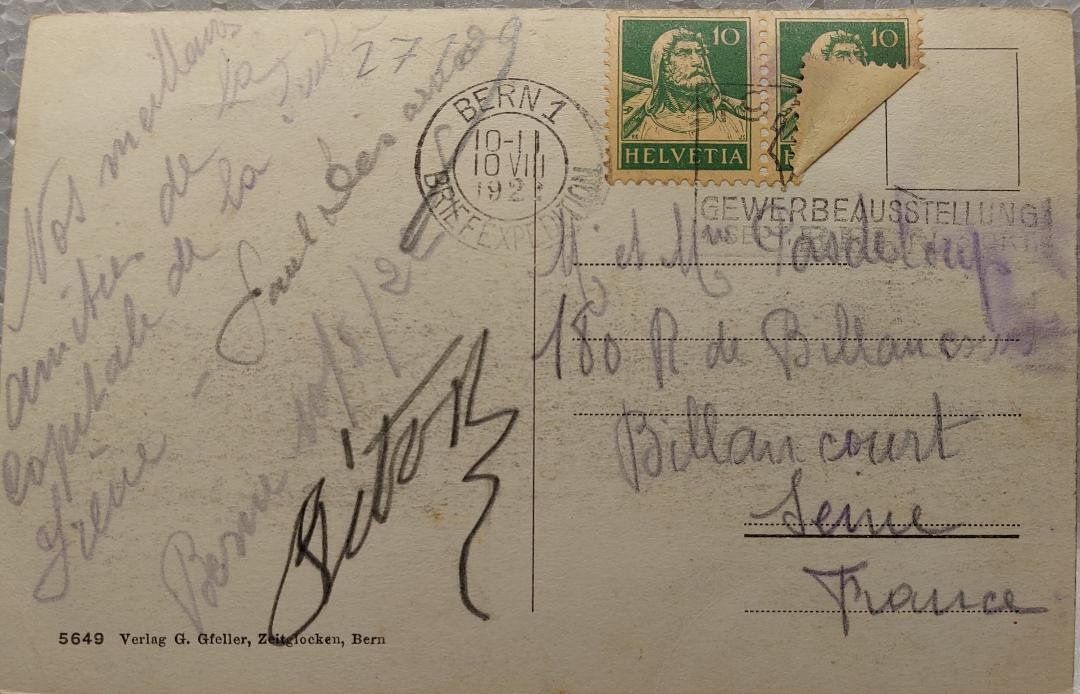 Nos meilleurs
amitiés de la
capitale de la Suisse
Irène - Paul
Berne 10/8/2
27
BERN 1
10-11
10 VIII
192
BRIEFEXPEDITION
10
HELVETIA
10
GEWERBEAUSSTELLUNG
M. et Mme Pasdeloup
180 R de Billancourt
Billancourt
Seine
France
5649 Verlag G. Gfeller, Zeitglocken, Bern